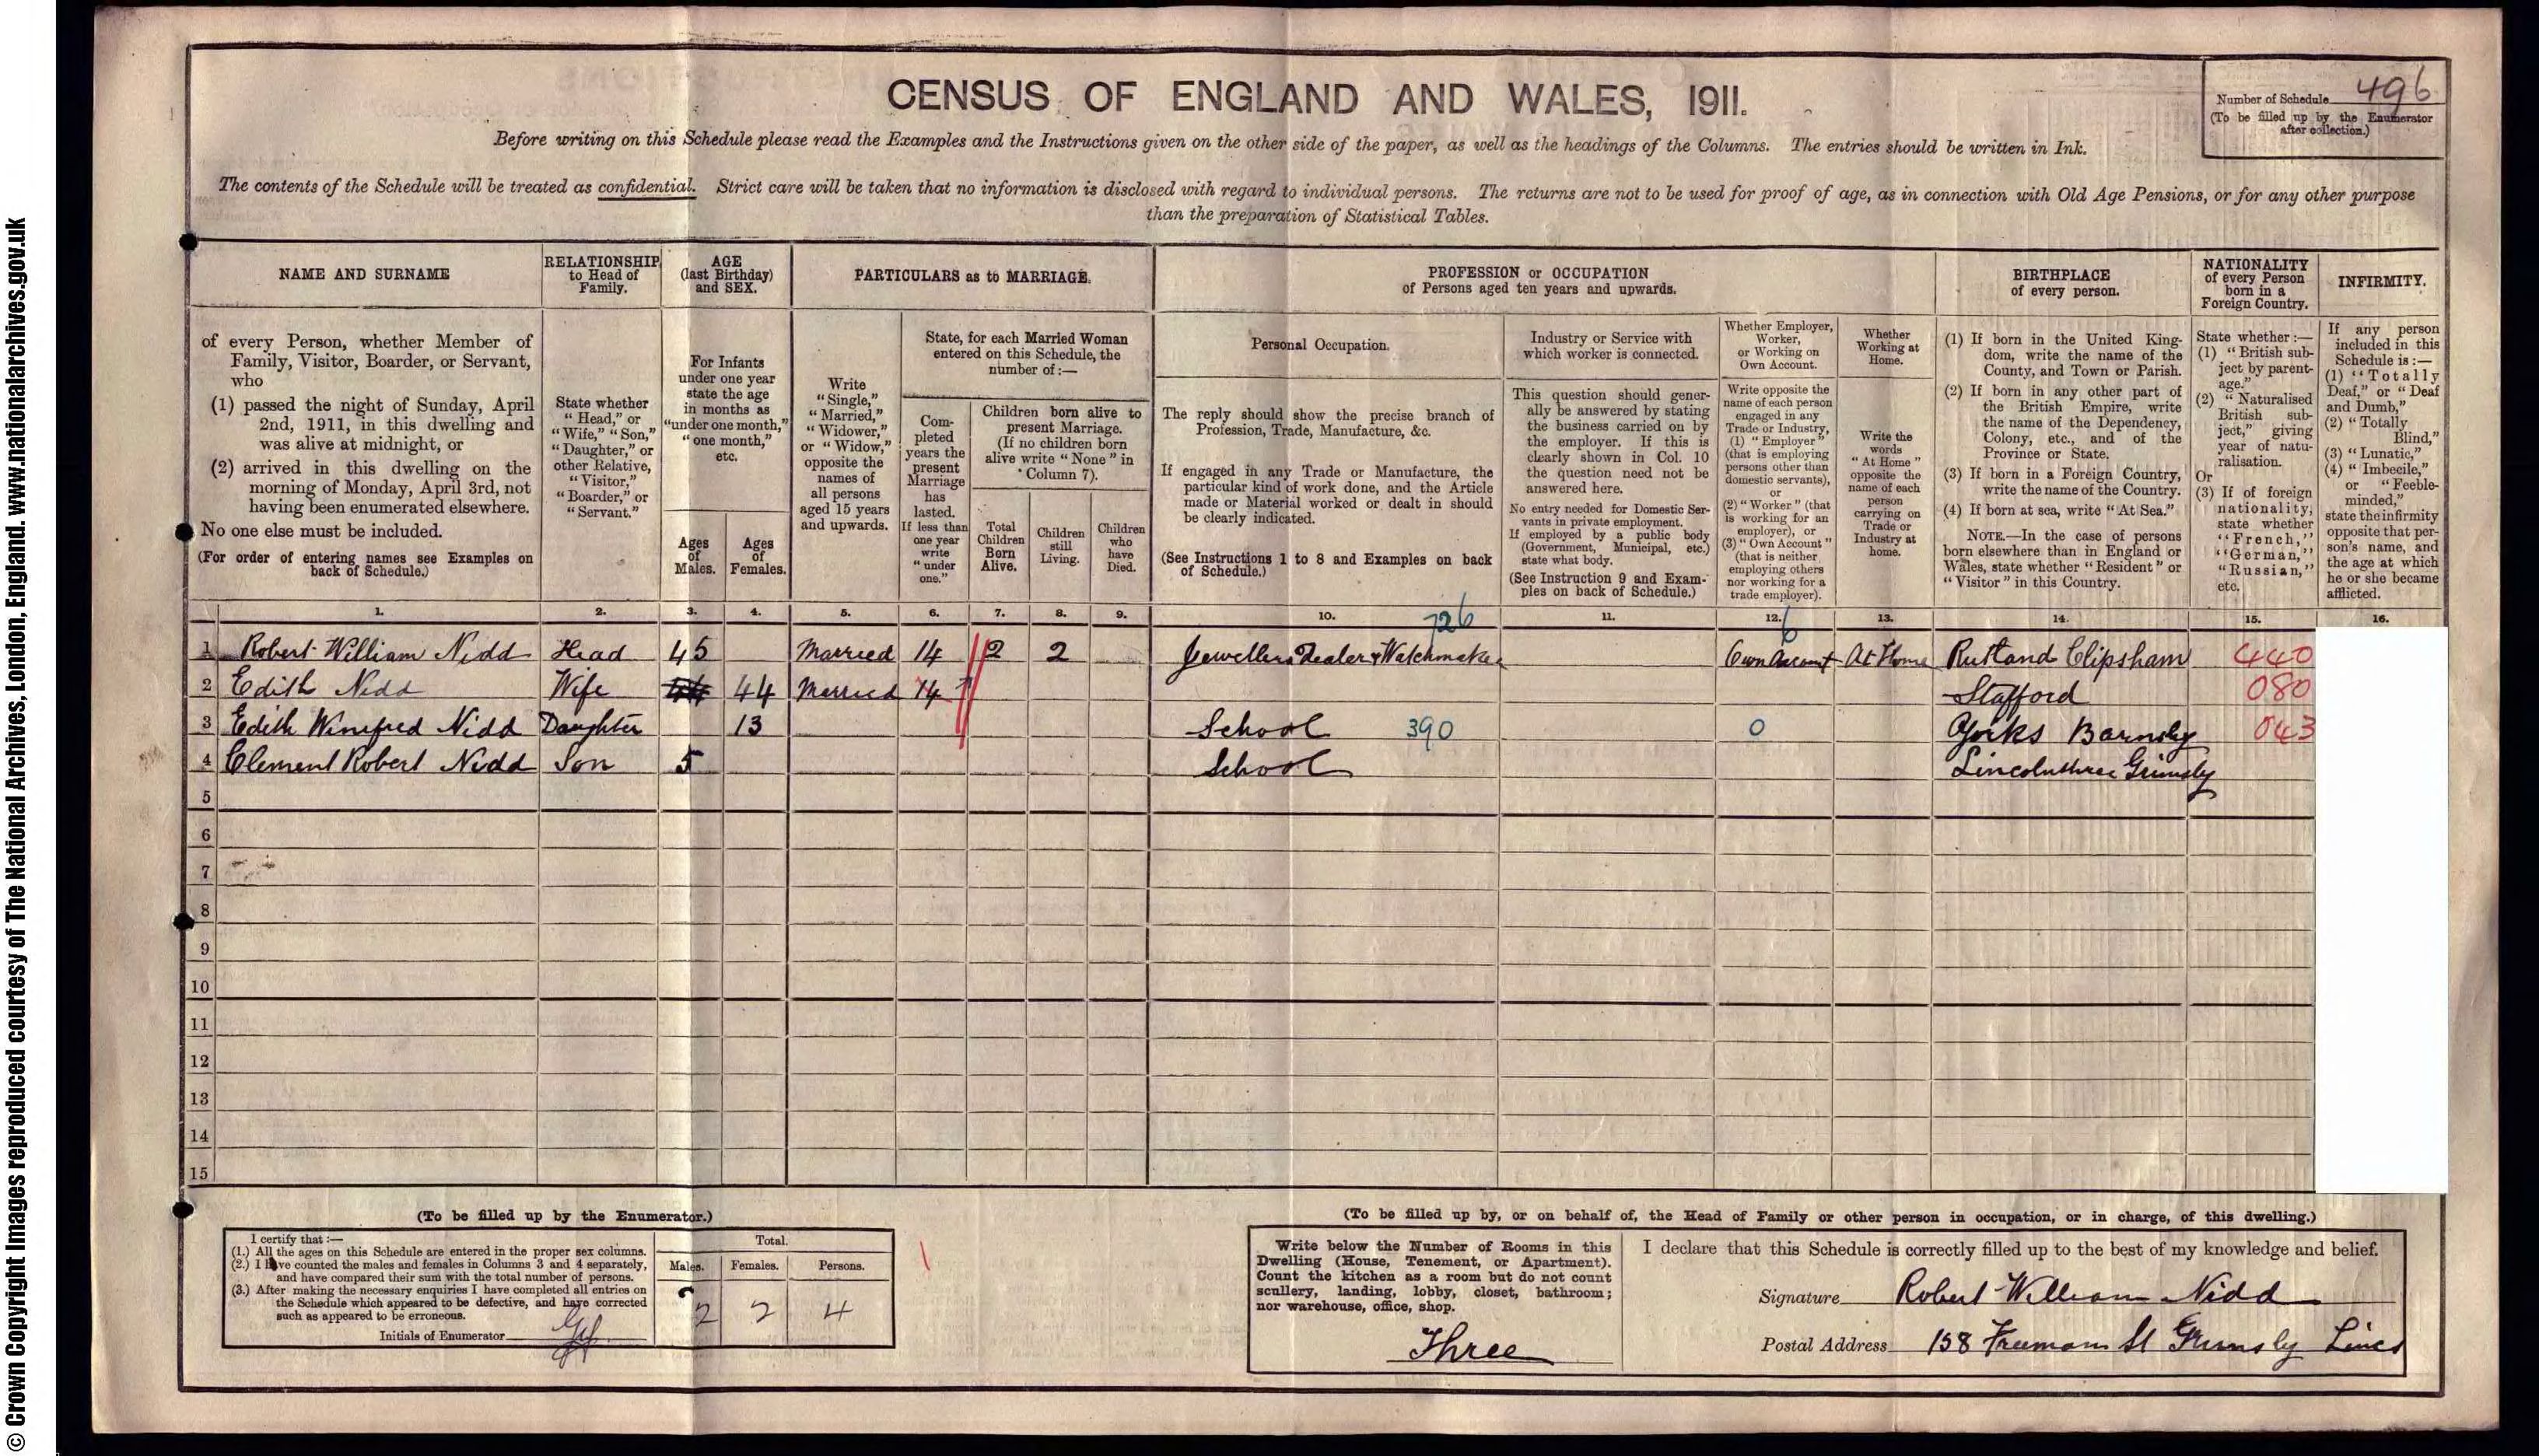 © Crown Copyright Images reproduced courtesy of The National Archives, London, England. www.nationalarchives.gov.uk
CENSUS OF ENGLAND AND WALES, 1911.
Number of Schedule 496
(To be filled up by the Enumerator
after collection.)
Before writing on this Schedule please read the Examples and the Instructions given on the other side of the paper, as well as the headings of the Columns. The entries should be written in Ink.
The contents of the Schedule will be treated as confidential. Strict care will be taken that no information is disclosed with regard to individual persons. The returns are not to be used for proof of age, as in connection with Old Age Pensions, or for any other purpose
than the preparation of Statistical Tables.
NAME AND SURNAME
RELATIONSHIP
to Head of
Family.
AGE
(last Birthday)
and SEX.
PARTICULARS as to MARRIAGE.
PROFESSION or OCCUPATION
of Persons aged ten years and upwards.
BIRTHPLACE
of every person.
NATIONALITY
of every Person
born in a
Foreign Country.
INFIRMITY.
of every Person, whether Member of
Family, Visitor, Boarder, or Servant,
who
(1) passed the night of Sunday, April
2nd, 1911, in this dwelling and
was alive at midnight, or
(2) arrived in this dwelling on the
morning of Monday, April 3rd, not
having been enumerated elsewhere.
No one else must be included.
(For order of entering names see Examples on
back of Schedule.)
State whether
"Head," or
"Wife," "Son,"
"Daughter," or
other Relative,
"Visitor,"
"Boarder," or
"Servant."
For Infants
under one year
state the age
in months as
"under one month,"
"one month,"
etc.
Ages
of
Males.
Ages
of
Females.
Write
"Single,"
"Married,"
"Widower,"
or "Widow,"
opposite the
names of
all persons
aged 15 years
and upwards.
State, for each Married Woman
entered on this Schedule, the
number of:—
Com-
pleted
years the
present
Marriage
has
lasted.
If less than
one year
write
"under
one."
Children born alive to
present Marriage.
(If no children born
alive write "None" in
Column 7).
Total
Children
Born
Alive.
Children
still
Living.
Children
who
have
Died.
Personal Occupation.
The reply should show the precise branch of
Profession, Trade, Manufacture, &c.
If engaged in any Trade or Manufacture, the
particular kind of work done, and the Article
made or Material worked or dealt in should
be clearly indicated.
(See Instructions 1 to 8 and Examples on back
of Schedule.)
Industry or Service with
which worker is connected.
This question should gener-
ally be answered by stating
the business carried on by
the employer. If this is
clearly shown in Col. 10
the question need not be
answered here.
No entry needed for Domestic Ser-
vants in private employment.
If employed by a public body
(Government, Municipal, etc.)
state what body.
(See Instruction 9 and Exam-
ples on back of Schedule.)
Whether Employer,
Worker,
or Working on
Own Account.
Write opposite the
name of each person
engaged in any
Trade or Industry,
(1) "Employer"
(that is employing
persons other than
domestic servants),
or
(2) "Worker" (that
is working for an
employer), or
(3) "Own Account"
(that is neither
employing others
nor working for a
trade employer).
Whether
Working at
Home.
Write the
words
"At Home"
opposite the
name of each
person
carrying on
Trade or
Industry at
home.
(1) If born in the United King-
dom, write the name of the
County, and Town or Parish.
(2) If born in any other part of
the British Empire, write
the name of the Dependency,
Colony, etc., and of the
Province or State.
(3) If born in a Foreign Country,
write the name of the Country.
(4) If born at sea, write "At Sea."
NOTE.—In the case of persons
born elsewhere than in England or
Wales, state whether "Resident" or
"Visitor" in this Country.
State whether:—
(1) "British sub-
ject by parent-
age."
(2) "Naturalised
British sub-
ject," giving
year of natu-
ralisation.
Or
(3) If of foreign
nationality,
state whether
"French,"
"German,"
"Russian,"
etc.
If any person
included in this
Schedule is:—
(1) "Totally
Deaf," or "Deaf
and Dumb,"
(2) "Totally
Blind,"
(3) "Lunatic,"
(4) "Imbecile,"
or "Feeble-
minded,"
state the infirmity
opposite that per-
son's name, and
the age at which
he or she became
afflicted.
1. 2. 3. 4. 5. 6. 7. 8. 9. 10. 11. 12. 13. 14. 15. 16.
726 6
1 Robert William Nidd Head 45 Married 14 2 2 Jewellers Dealer & Watchmaker Own Account At Home Rutland Clipsham 440
2 Edith Nidd Wife 44 44 Married 14 Stafford 080
3 Edith Winifred Nidd Daughter 13 School 390 0 Yorks Barnsley 043
4 Clement Robert Nidd Son 5 School Lincolnshire Grimsby
5
6
7
8
9
10
11
12
13
14
15
(To be filled up by the Enumerator.)
I certify that:—
(1.) All the ages on this Schedule are entered in the proper sex columns.
(2.) I have counted the males and females in Columns 3 and 4 separately,
and have compared their sum with the total number of persons.
(3.) After making the necessary enquiries I have completed all entries on
the Schedule which appeared to be defective, and have corrected
such as appeared to be erroneous.
Initials of Enumerator
Total.
Males. Females. Persons.
2 2 4
(To be filled up by, or on behalf of, the Head of Family or other person in occupation, or in charge, of this dwelling.)
Write below the Number of Rooms in this
Dwelling (House, Tenement, or Apartment).
Count the kitchen as a room but do not count
scullery, landing, lobby, closet, bathroom;
nor warehouse, office, shop.
Three
I declare that this Schedule is correctly filled up to the best of my knowledge and belief.
Signature Robert William Nidd
Postal Address 158 Freeman St Grimsby Lincs